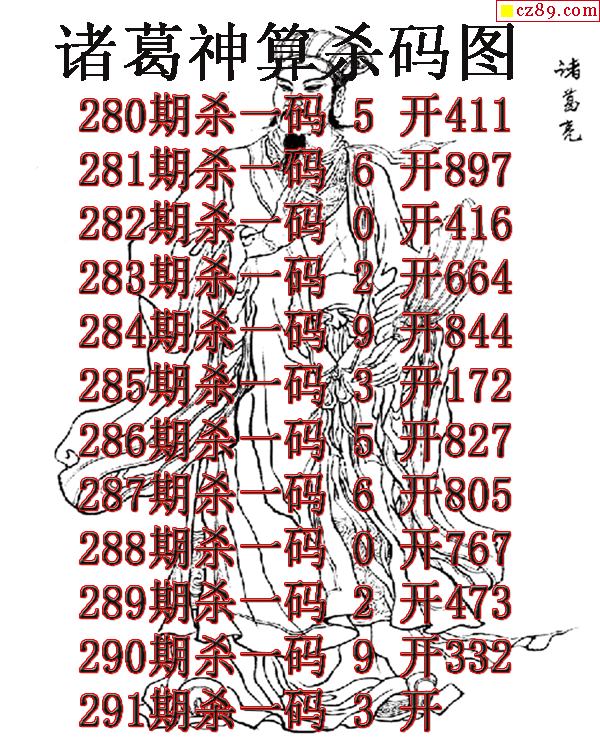 cz89.com
诸葛神算杀码图
诸葛亮
280期杀一码 5 开411
281期杀一码 6 开897
282期杀一码 0 开416
283期杀一码 2 开664
284期杀一码 9 开844
285期杀一码 3 开172
286期杀一码 5 开827
287期杀一码 6 开805
288期杀一码 0 开767
289期杀一码 2 开473
290期杀一码 9 开332
291期杀一码 3 开